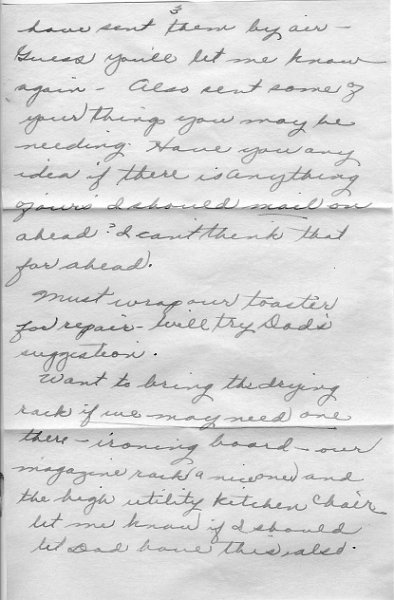 3
have sent them by air -
Guess you'll let me know
again - Also sent some of
your things you may be
needing. Have you any
idea if there is anything
of yours I should mail on
ahead? I can't think that
far ahead.
Must wrap our toaster
for repair - will try Dad's
suggestion.
Want to bring the drying
rack if we may need one
there - ironing board - our
magazine rack (a nice one) and
the high utility kitchen chair
let me know if I should
let Dad have this, also.